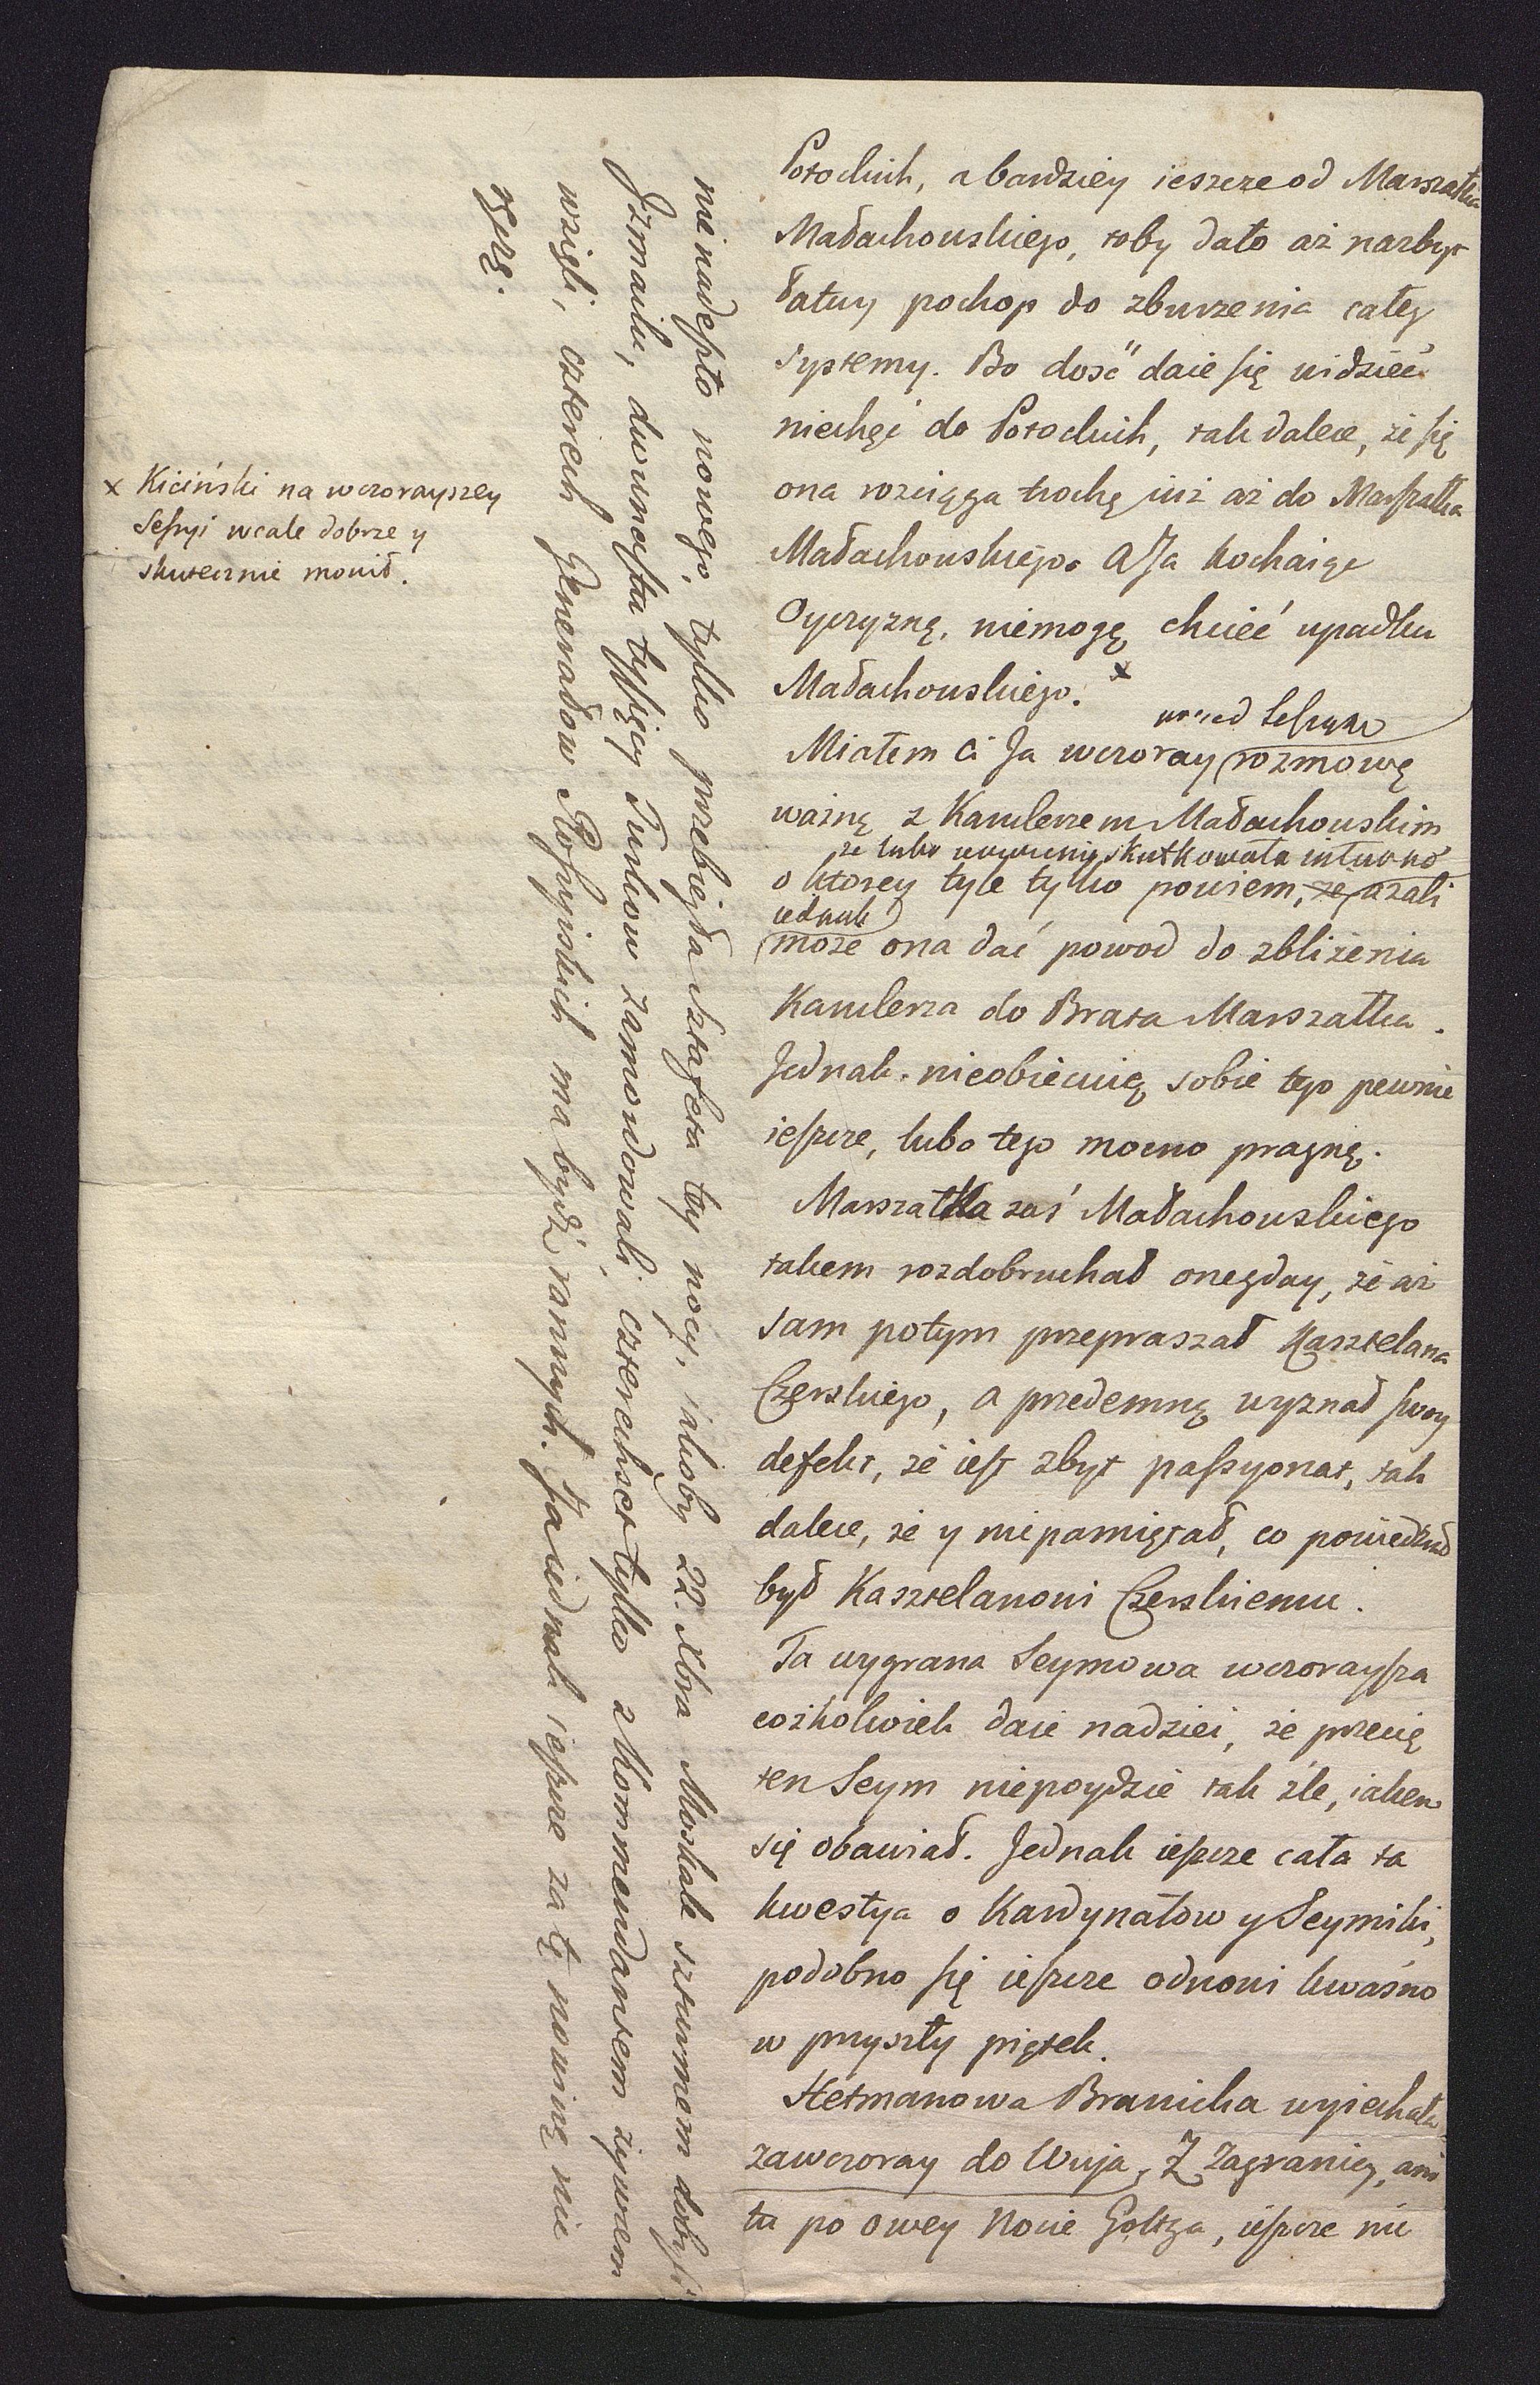 Potockich, a bardziey ieszcze od Marszałka
Małachowskiego, toby dało aż nazbyt
łatwy pochop do zburzenia całey
systemy. Bo dosć daie się widzieć
niechęć do Potockich, tak dalece, że się
ona rozciąga trochę iuż aż do Marszałka
Małachowskiego. A Ja kochaiąc
Oyczyznę, niemogę chcieć upadku
Małachowskiego. x
x Kiciński na wczorayszey
Sessyi wcale dobrze y
skutecznie mowił.
przed Sessyą
Miałem ci Ja wczoray rozmowę
ważną z Kanclerzem Małachowskim
że lubo skutkowała
o ktorey tyle tylko powiem, że azali
iednak
może ona dać powod do zbliżenia
Kanclerza do Brata Marszałka.
Jednak nieobiecuię sobie tego pewnie
ieszcze, lubo tego mocno pragnę.
Marszałka zaś Małachowskiego
takem rozdobruchał onegday, że aż
sam potym przepraszał Kasztelana
Czerskiego, a przedemną wyznał swoy
defekt, że iest zbyt passyonat, tak
dalece, że y niepamiętał, co powiedział
był Kasztelanowi Czerskiemu.
Ta wygrana Seymowa wczoraysza
cożkolwiek daie nadziei, że przecię
ten Seym niepoydzie tak źle, iakem
się obawiał. Jednak ieszcze cała ta
kwestya o Kardynałow y Seymiki,
podobno się ieszcze odnowi kwaśno
w przyszły piątek.
Hetmanowa Branicka wyiechała
zawczoray do Wuja. Z Zagranicy, ani
tu po owey Nocie Goltza, ieszcze nic
nie nadeszło nowego, tylko przebiegła sztafeta tey nocy, iakoby 22. Xbra Moskale szturmem dobyli
Izmaiłu, dwunastu tysięcy Turkow zamordowali, czterechset tylko z Kommendantem żywcem
wzięli, czterech Generałow Rossyiskich ma bydź rannych. Ja iednak ieszcze za tę nowinę nie
ręczę.